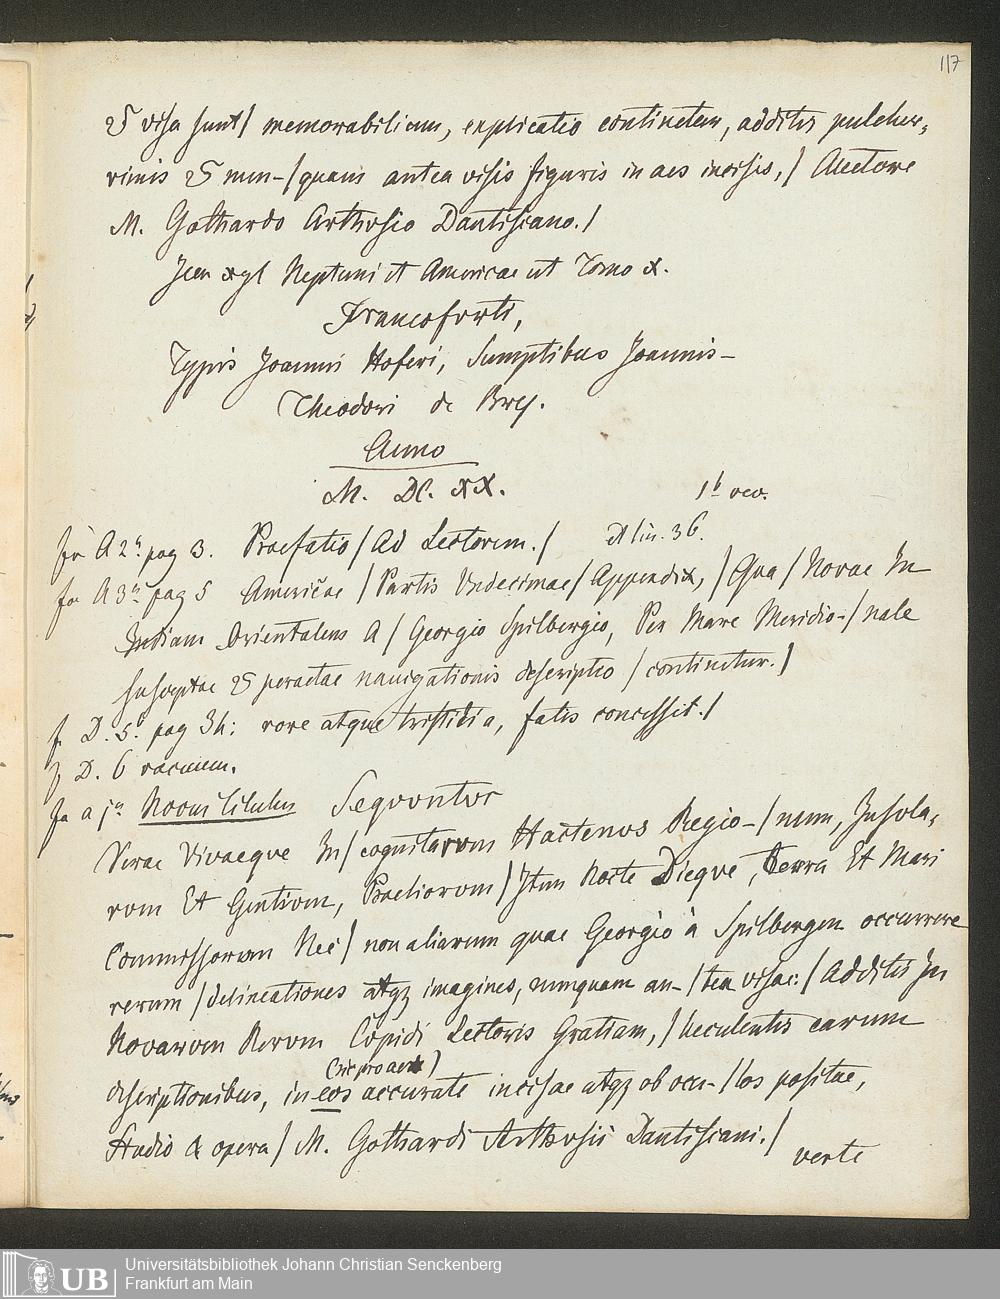 117
& visa sunt / memorabilium, explicatio continetur, additis pulcher-
rimis & nun-/quam antea visis figuris in aes incisis, / Auctore
M. Gothardo Arthusio Dantiscano. /
Neptuni et Americae ut Tomo X.
Francofurti,
Typis Joannis Hoferi, Sumptibus Joannis-
Theodori de Bry.
Anno
M. DC. XX.
1b vac.
fo A 2a pag 3. Praefatio / Ad Lectorem. / lin. 36.
fo A 3a pag 5 Americae / Partis Undecimae / Appendix, / Qua / Novae In
Indiam Orientalem A / Georgio Spilbergio, Per Mare Meridio-/nale
susceptae & peractae navigationis descriptio / continetur. /
f. D. 5. pag 34: rore atque tristitia, fatis concessit. /
f. D. 6 vacuum.
fo a ja Novus titulus Sequuntur
Verae Vivaeque In/cognitarum Hactenus Regio-/num, Insula-
rum Et Gentium, Praeliorum / Item Nocte Dieque, Terra Et Mari
Commissorum Nec / non aliarum quae Georgio à Spilbergen occurrere
rerum / delineationes atqz imagines, nunquam an-/tea visae: / Additis In
Novarum Rerum Cupidi Lectoris Gratiam, / luculentis earum
descriptionibus, in eos (sic pro aes) accurate incisae atqz ob ocu-/los positae,
Studio & opera / M. Gothardi Arthusii Dantiscani. /
verte
UB
Universitätsbibliothek Johann Christian Senckenberg
Frankfurt am Main